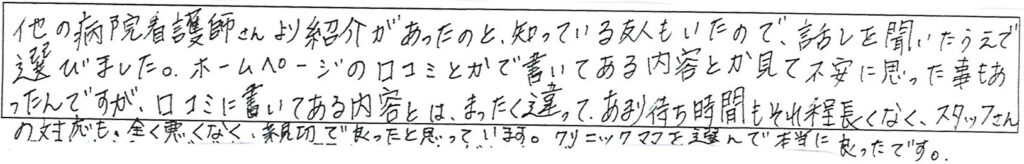 他の病院看護師さんより紹介があったのと、知っている友人もいたので、話しを聞いたうえで
選びました。ホームページの口コミとかで書いてある内容とか見て不安に思った事もあ
ったんですが、口コミに書いてある内容とは、まったく違って、あまり待ち時間もそれ程長くなく、スタッフさん
の対応も、全く悪くなく、親切で良かったと思っています。クリニックママを選んで本当に良ったです。